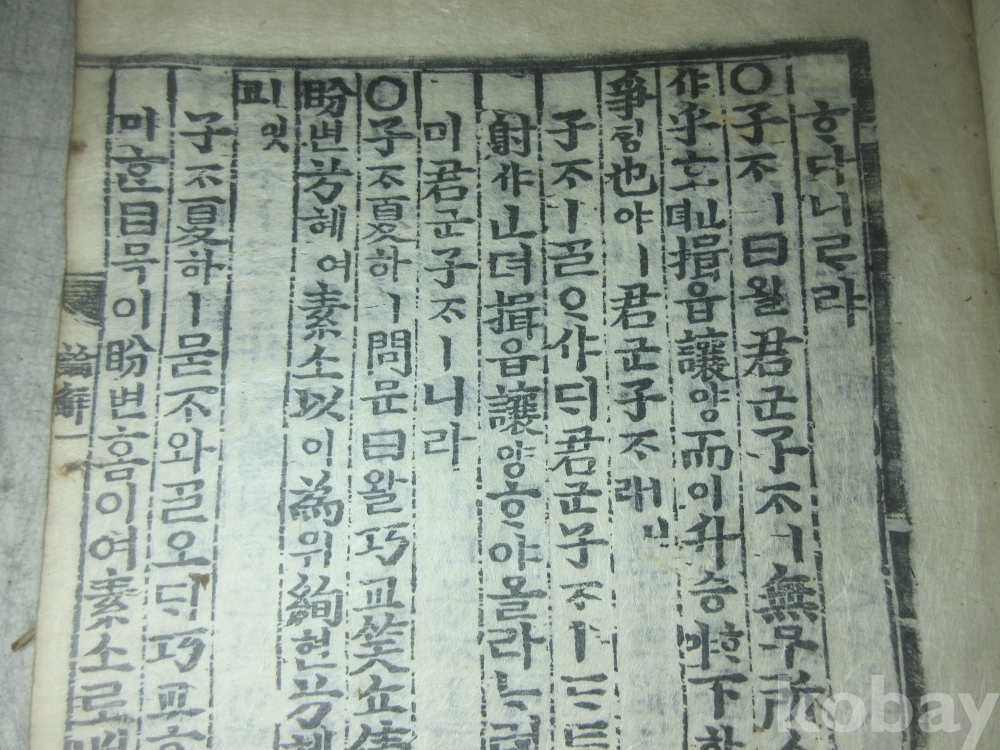 ᄒᆞ다니ᄅᆞ랴
○子ᄌᆞㅣ曰왈君군子ᄌᆞㅣ無무所소
샤乎호揖읍讓양而이升승ᄒᆞ야下하
爭ᄌᆡᆼ也야ㅣ君군子ᄌᆞ
子ᄌᆞㅣᄀᆞᆯᄋᆞ샤ᄃᆡ君군子ᄌᆞㅣ
射샤ㅣ뎌揖읍讓양ᄒᆞ야올라ᄂᆞ려
미君군子ᄌᆞㅣ니라
○子ᄌᆞ夏하ㅣ問문曰왈巧교笑쇼倩
盼변兮혜여素소以이爲위絢현兮혜
괴잇
子ᄌᆞ夏하ㅣ묻ᄌᆞ와ᄀᆞᆯ오ᄃᆡ巧교
마ᄒᆞᆫ目목이盼변ᄒᆞᆷ이여素소로
論解一
kobay